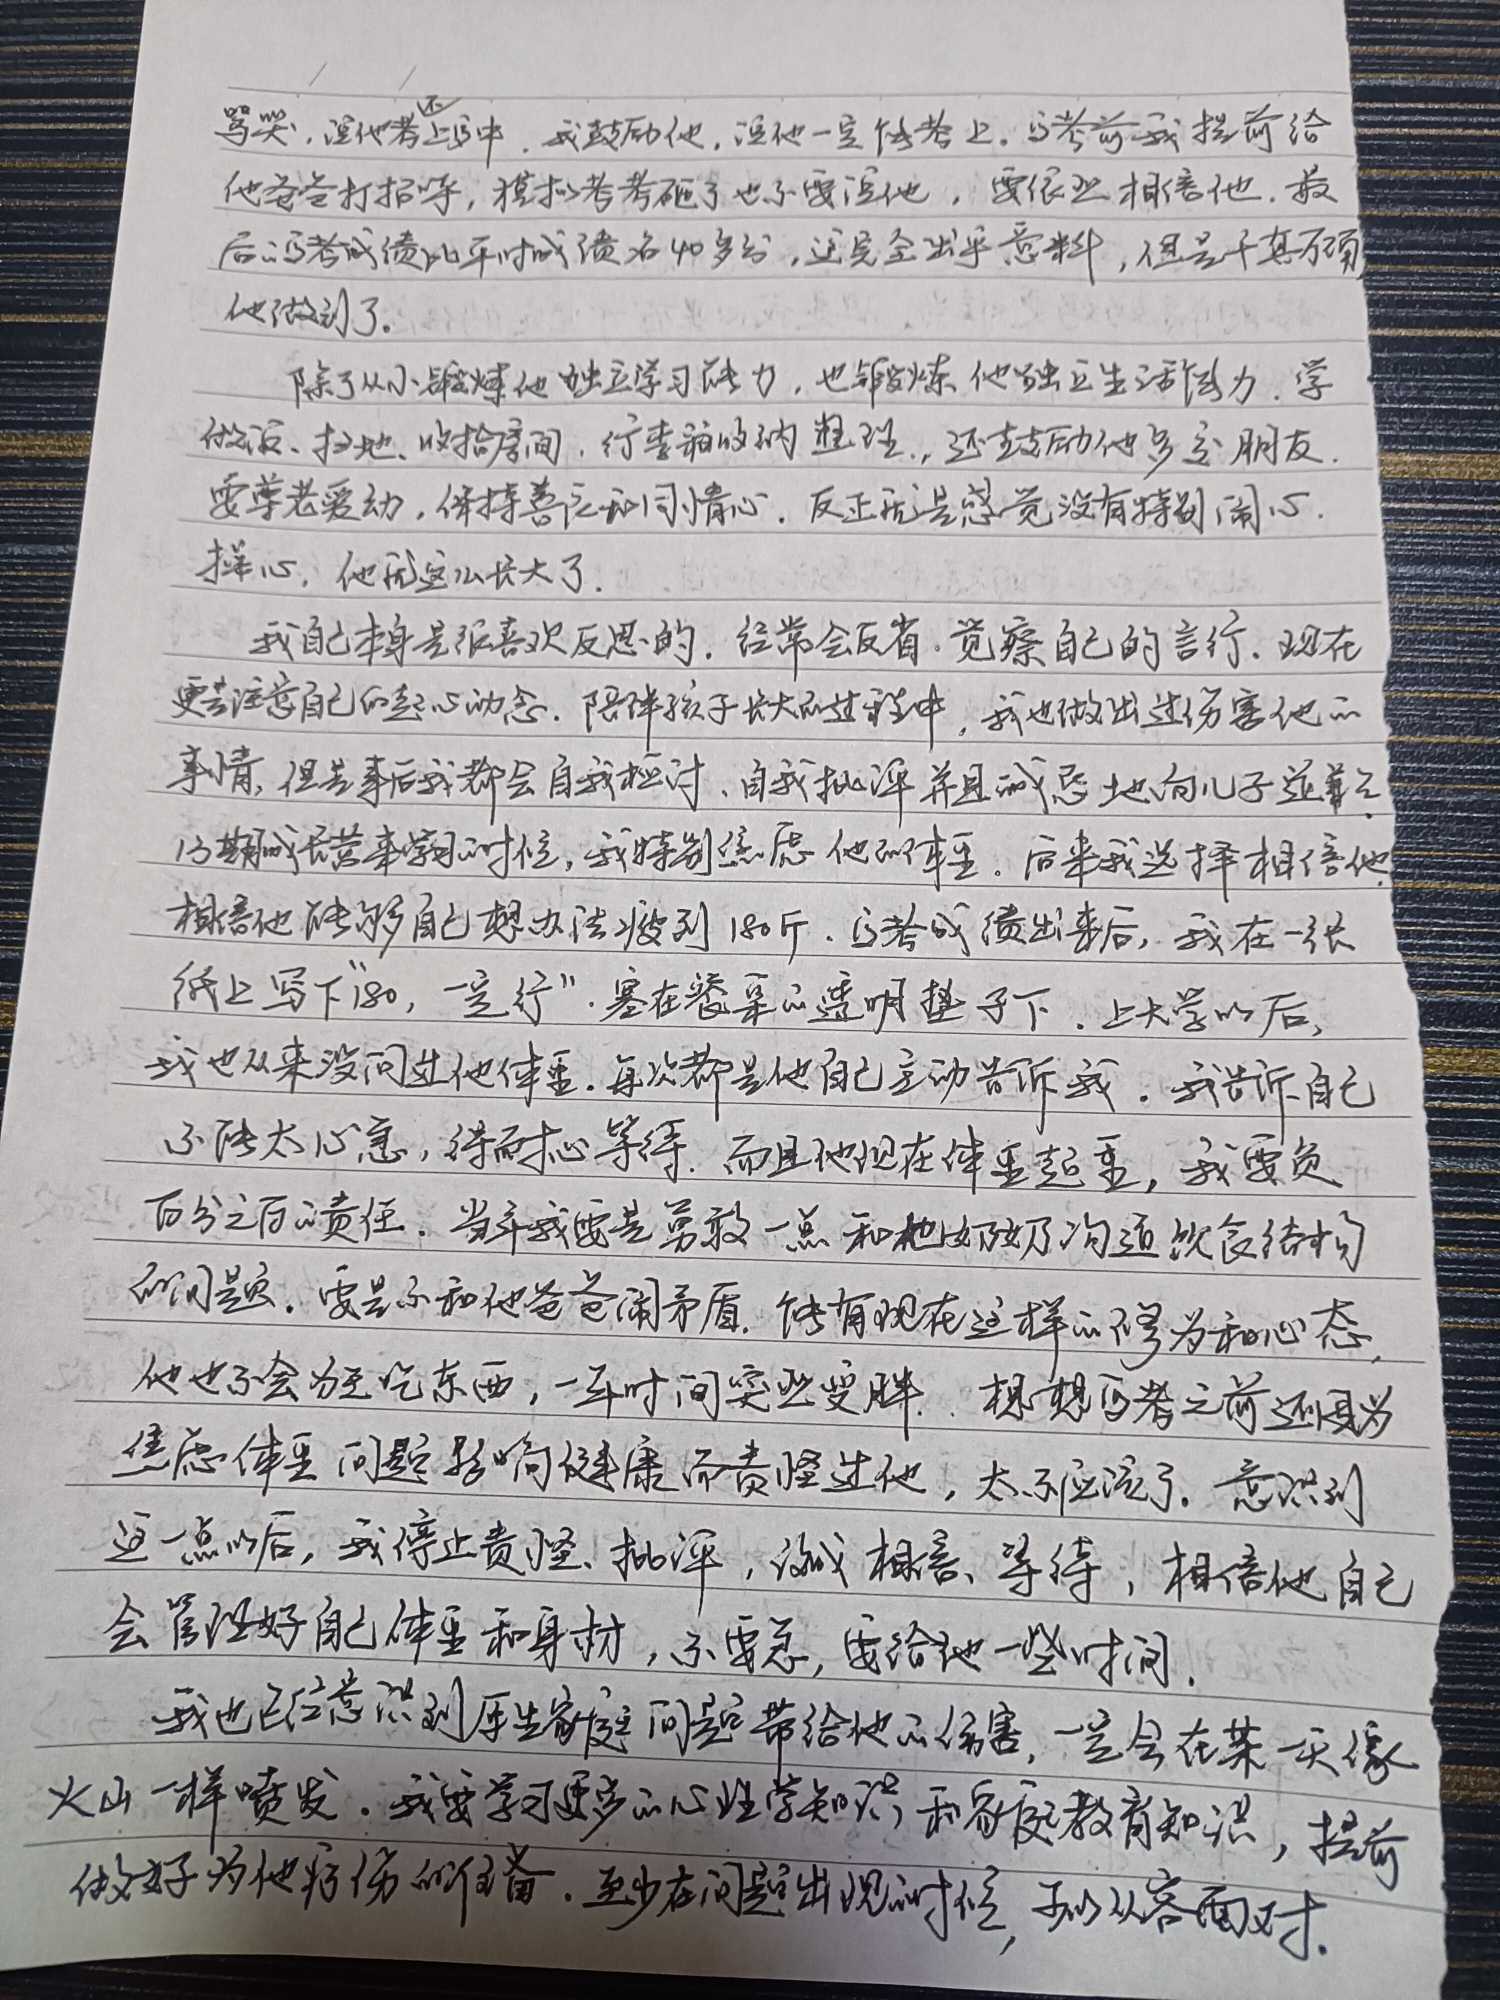 骂哭，说他考还上高中，我鼓励他，说他一定能考上。高考前我提前给
他爸爸打招呼，模拟考考砸了也不要说他，要依然相信他。最
后高考成绩比平时成绩多40多分，这完全出乎意料，但是千真万确
他做到了。
除了从小锻炼他独立学习能力，也锻炼他独立生活能力。学
做饭、扫地、收拾房间，行李箱收纳整理，还鼓励他多交朋友。
要尊老爱幼，保持善良和同情心。反正就是感觉没有特别闹心、
操心，他就这么长大了。
我自己本身是很喜欢反思的。经常会反省、觉察自己的言行。现在
更是注意自己的起心动念。陪伴孩子长大的过程中，我也做出过伤害他的
事情，但是事后我都会自我检讨、自我批评并且诚恳地向儿子道歉。
后来我选择相信他，
相信他能够自己想办法瘦到180斤。高考成绩出来后，我在一张
纸上写下“180，一定行”。塞在餐桌的透明垫子下。上大学以后，
我也从来没问过他体重。每次都是他自己主动告诉我。我告诉自己
不能太心急，得耐心等待。而且他现在体重超重，我要负
百分之百的责任。当年我要是勇敢一点和他奶奶沟通饮食结构
的问题。要是不和他爸爸闹矛盾。能有现在这样的修为和心态，
他也不会为主吃东西，一年时间突然变胖。想想高考之前还因为
焦虑体重问题影响健康而责怪过他，太不应该了。意识到
这一点以后，我停止责怪、批评，改成相信、等待，相信他自己
会管理好自己体重和身材，不要急，要给他一些时间。
我也已经意识到原生家庭问题带给他的伤害，一定会在某一天像
火山一样喷发。我要学习更多的心理学知识和家庭教育知识，提前
做好为他疗伤的准备。至少在问题出现的时候，可以从容面对。